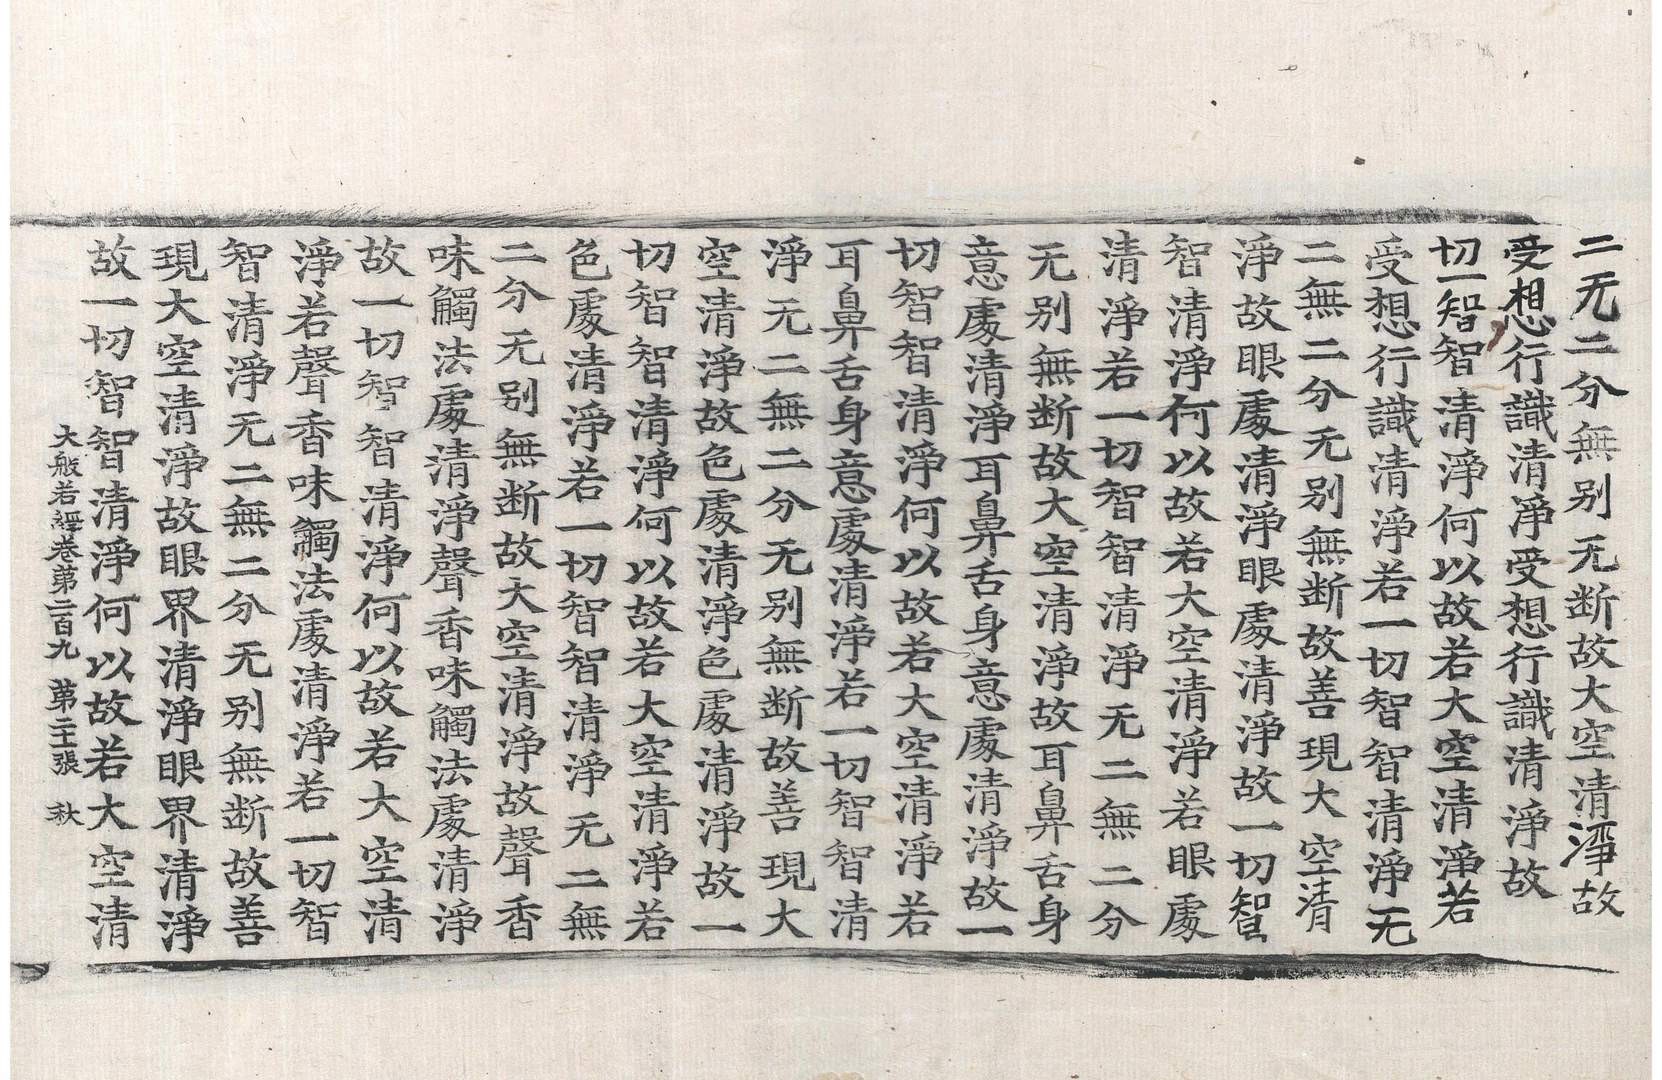 二无二分無别无断故大空清淨故
受想行識清淨受想行識清淨故
切一智智清淨何以故若大空清淨若
受想行識清淨若一切智智清淨无
二無二分无别無断故善現大空清
淨故眼處清淨眼處清淨故一切智
智清淨何以故若大空清淨若眼處
清淨若一切智智清淨无二無二分
无别無断故大空清淨故耳鼻舌身
意處清淨耳鼻舌身意處清淨故一
切智智清淨何以故若大空清淨若
耳鼻舌身意處清淨若一切智智清
淨无二無二分无别無断故善現大
空清淨故色處清淨色處清淨故一
切智智清淨何以故若大空清淨若
色處清淨若一切智智清淨无二無
二分无别無断故大空清淨故聲香
味觸法處清淨聲香味觸法處清淨
故一切智智清淨何以故若大空清
淨若聲香味觸法處清淨若一切智
智清淨无二無二分无别無断故善
現大空清淨故眼界清淨眼界清淨
故一切智智清淨何以故若大空清
大般若經卷第二百九 第二十張 秋